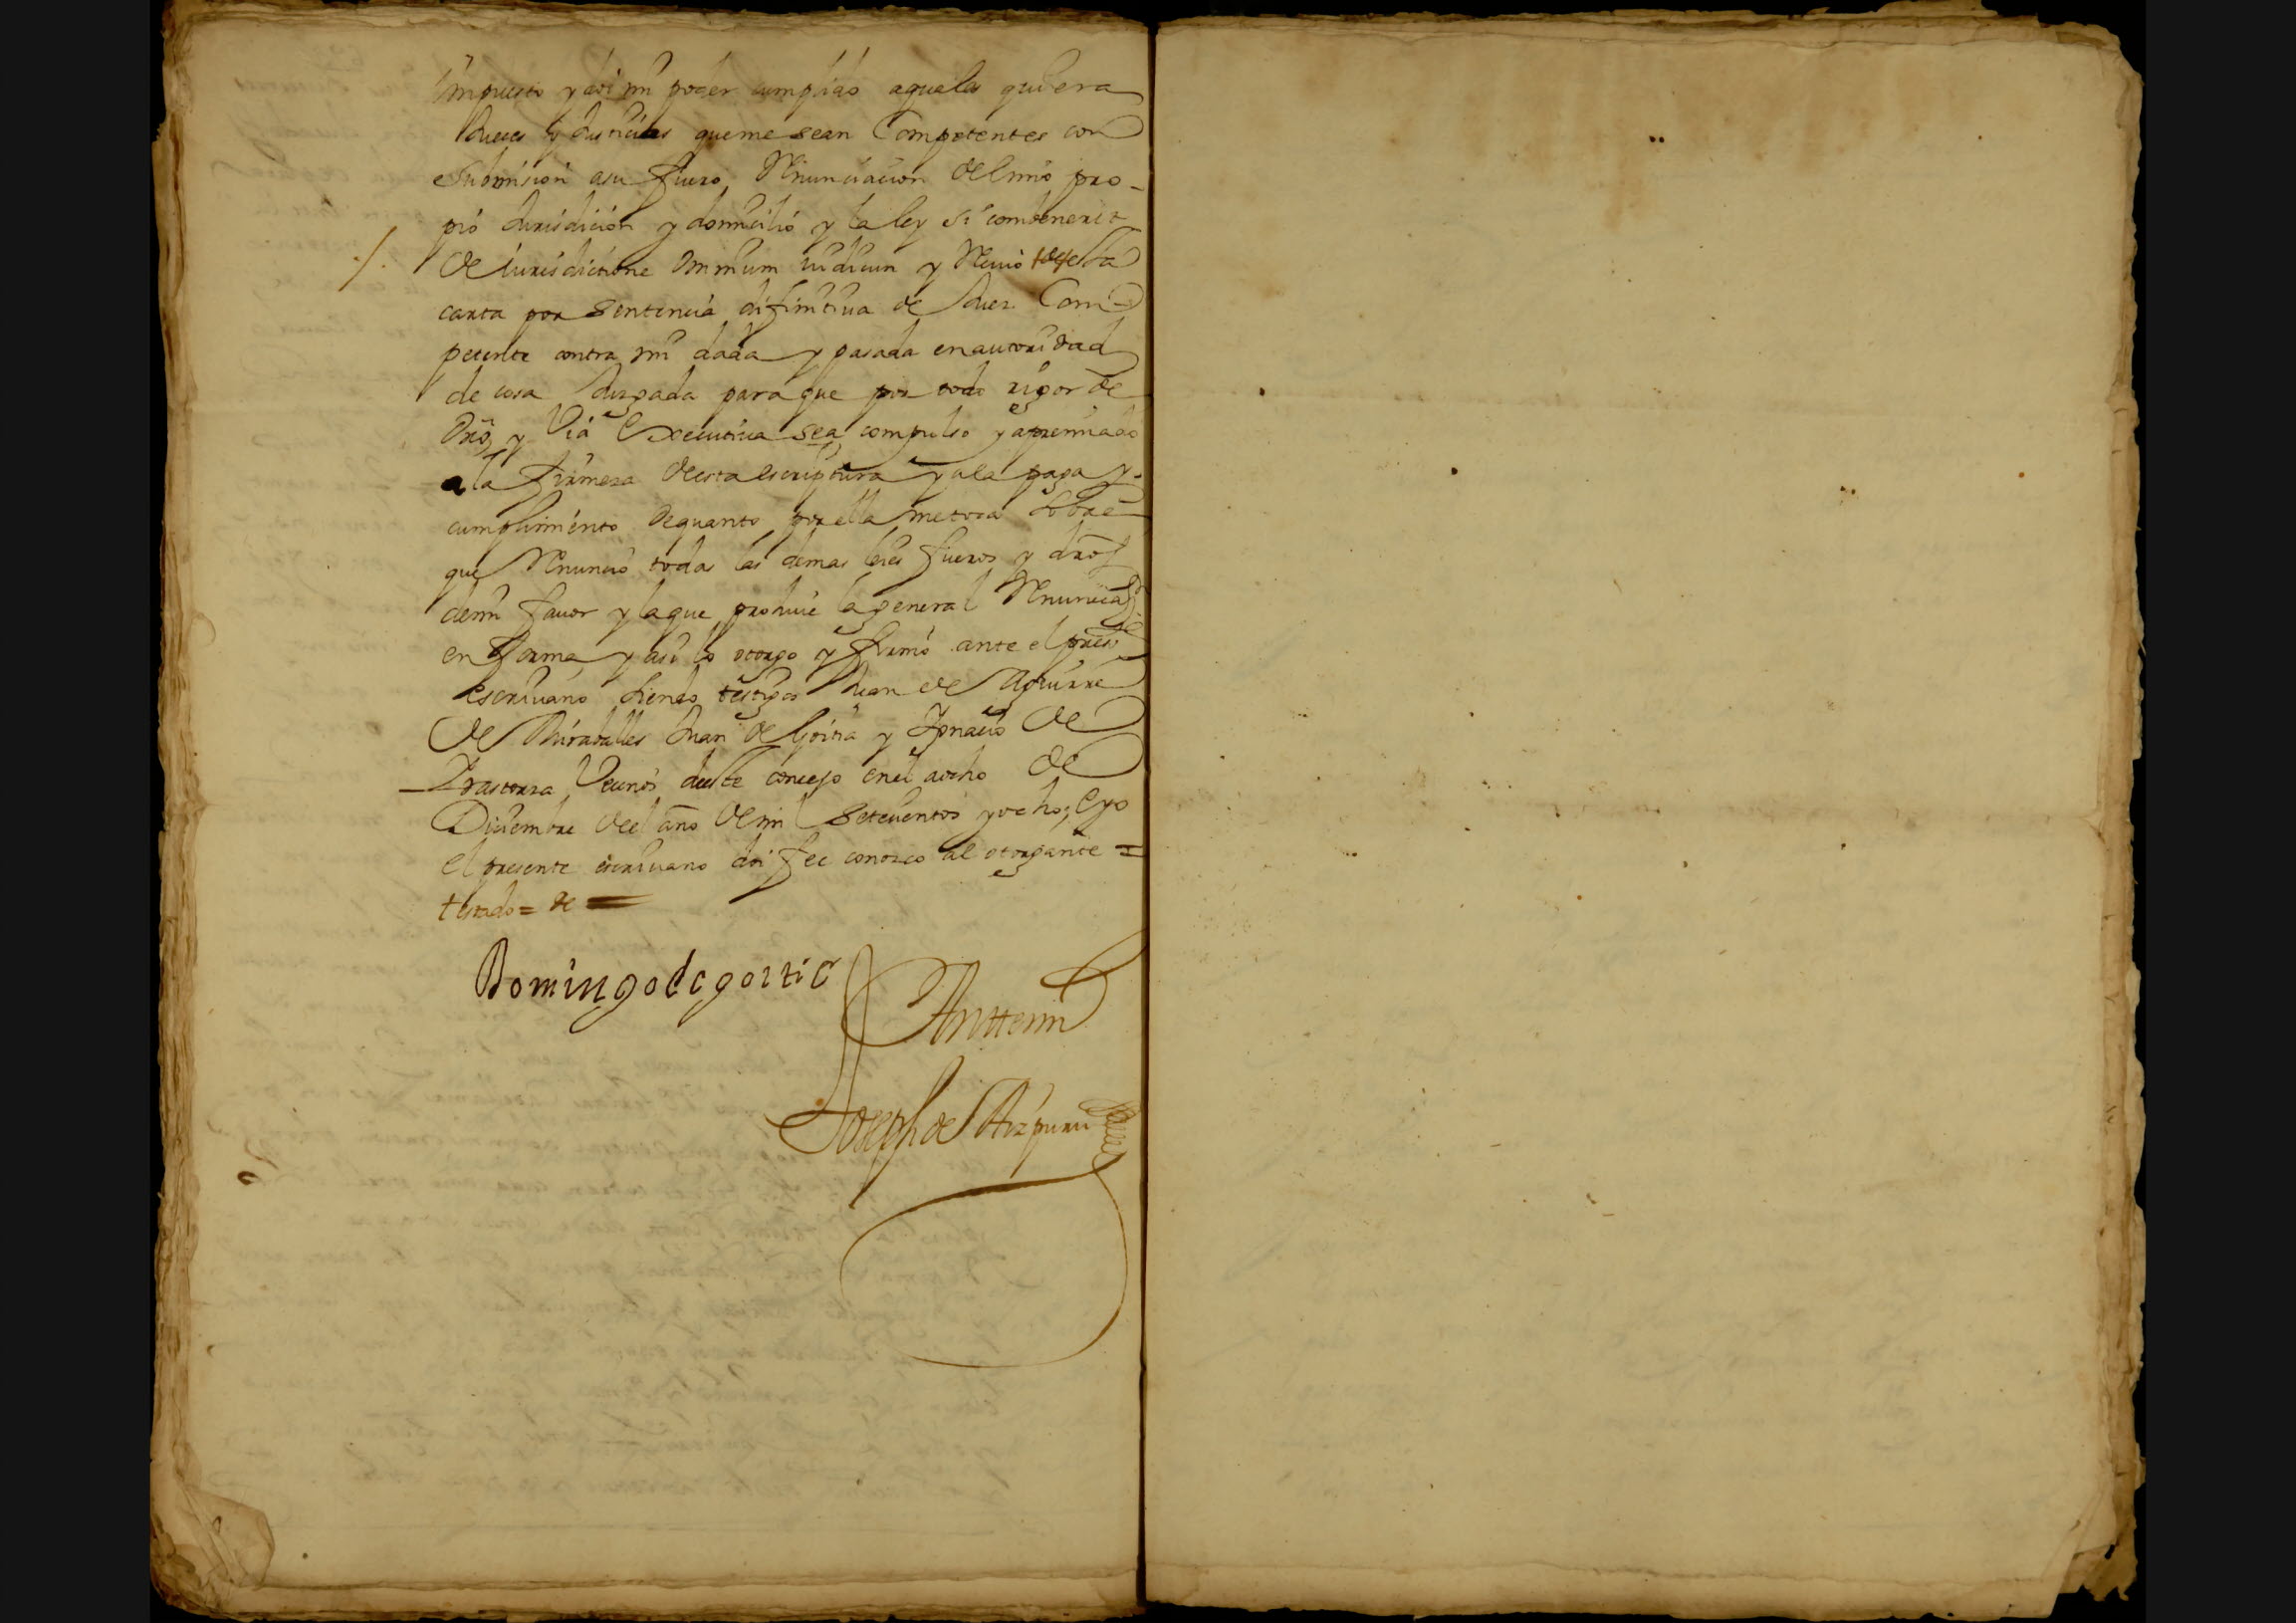 impuesto y doi mi poder cumplido aquales quiera
Jueces y Justicias que me sean Competentes con
Submision asu fuero Renunciacion del mio pro-
pio Jurisdicion y domicilio y la ley si combenerit
de iurisdictione omnium iudicum y Reciuo de esta
carta por sentencia difinitiua de Juez Com-
petente contra mi dada y pasada en autoridad
de cosa Juzgada para que por todo rigor de
dro y Via Executiua sea compulso y apremiado
a la firmeza desta escriptura y a la paga y
cumplimiento de quanto por ella me toca sobre
que Renuncio todas las demas leies fueros y dros
de mi fauor y la que prohiue la general Renunciaon
en forma y asi lo otorgo y firmo ante el presite
escriuano siendo testigos Juan de Aguirre
de Miraballes Juan de Goitia y Ignacio de
Vecinos deeste concejo en el a ocho de
Diciembre deel año de mil Setecientos y ocho, E yo
el presente escriuano doi fee conozco al otorgante =
testado = de =
Domingo de goitia
Antte mi
Joseph de Aizpuru